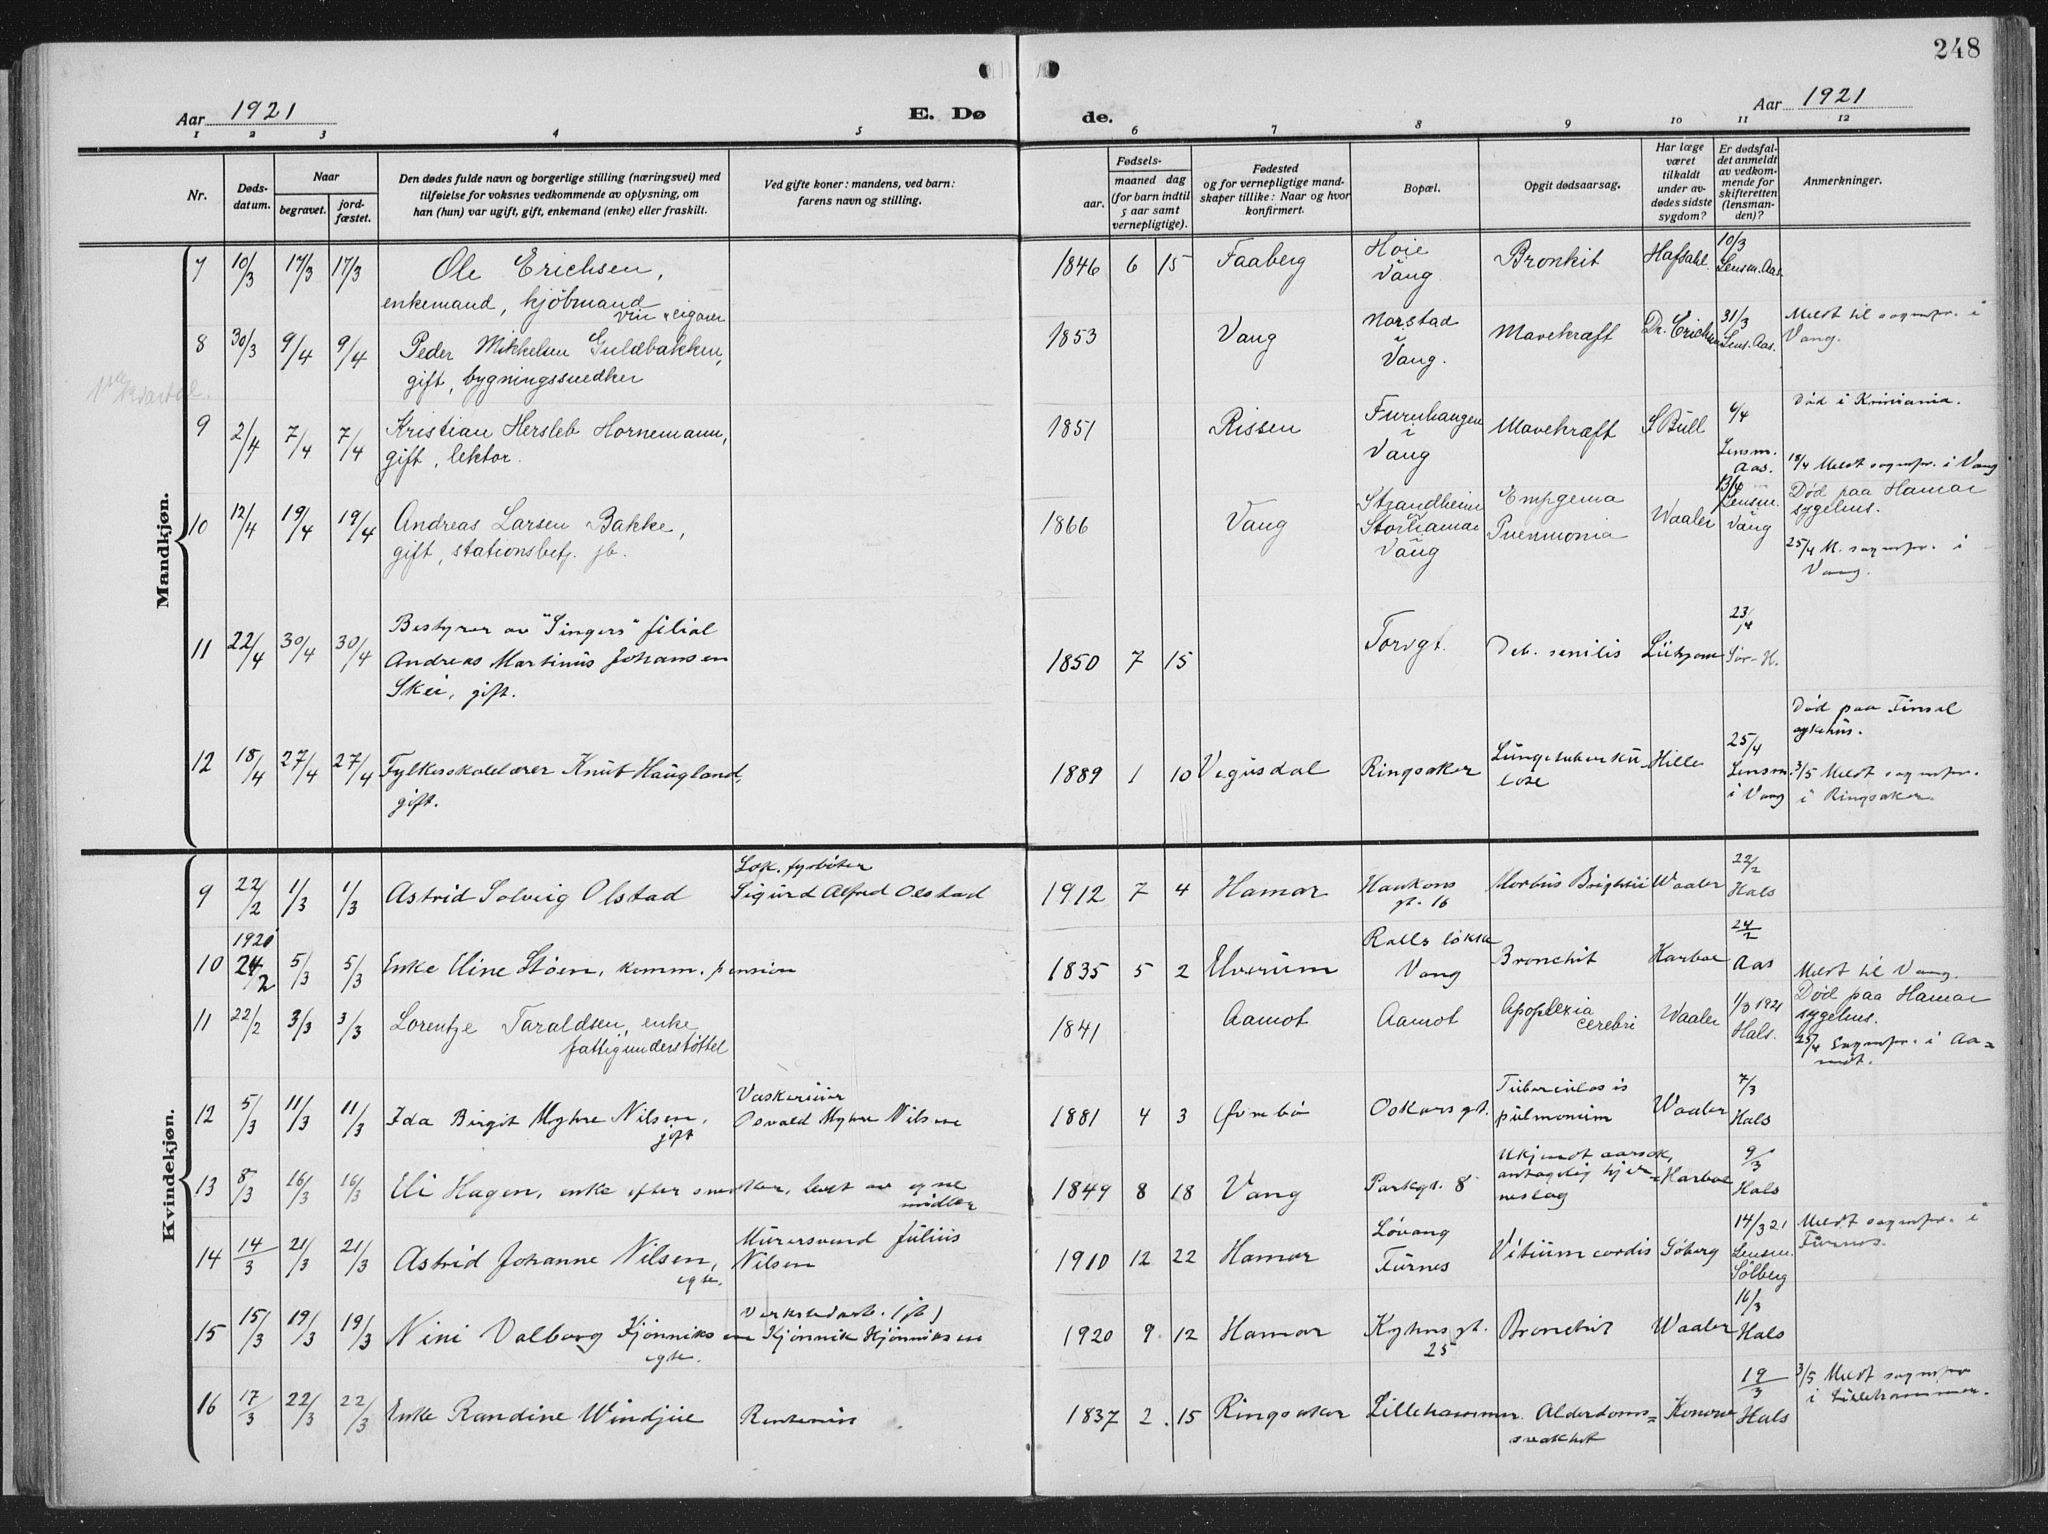 248
Aar 1921
E. Dø
de.
Aar 1921
1 2 3 4 5 6 7 8 9 10 11 12
Nr.
Døds-
datum.
Naar
begravet.
jord-
fæstet.
Den dødes fulde navn og borgerlige stilling (næringsvei) med
tilføielse for voksnes vedkommende av oplysning, om
han (hun) var ugift, gift, enkemand (enke) eller fraskilt.
Ved gifte koner: mandens, ved barn:
farens navn og stilling.
Fødsels-
aar.
maaned dag
(for barn indtil
5 aar samt
vernepligtige).
Fødested
og for vernepligtige mand-
skaper tillike: Naar og hvor
konfirmert.
Bopæl.
Opgit dødsaarsag.
Har læge
været
tilkaldt
under av-
dødes sidste
sygdom?
Er dødsfal-
det anmeldt
av vedkom-
mende for
skifteretten
(lensman-
den)?
Anmerkninger.
Mandkjøn.
7 10/3 17/3 17/3 Ole Erichsen,
enkemand, kjøbmand
vin cigarer
1846 6 15 Faaberg
Hoie
Vang
Bronkit
Hafsahl
10/3
Lensm. Aas.
8 30/3 9/4 9/4 Peder Mikkelsen Guldbakken,
gift, bygningssnedker
1853 Vang
Norstad
i
Vang.
Mavekræft
Dr. Erichsen
31/3
Lens. Aas.
Meldt til sognepr. i
Vang.
1ste kvartal.
9 2/4 7/4 7/4 Kristian Hersleb Hornemann,
gift, lektor.
1851 Rissen
Furuhaugen
i
Vang
Mavekræft
S Bull
6/4
Lensm.
Aas.
Død i Kristiania.
18/4 Meldt sognepr. i Vang
10 12/4 19/4 19/4 Andreas Larsen Bakke,
gift, stationsbetj. jb.
1866 Vang
Strandheim
Storhamar
Vang
Empyema
Pneumonia
Waaler
13/4
Lensm.
Vang
Død paa Hamar
sygehus.
25/4 M. sognepr. i
Vang.
11 22/4 30/4 30/4 Bestyrer av "Singers" filial
Andreas Martinus Johansen
Skei, gift.
1850 7 15
Torvgt.
Deb. senilis
23/4
Sør-H.
12 18/4 27/4 27/4 Fylkesskolelærer Knut Haugland,
gift.
1889 1 10 Vegusdal
Ringsaker
Lungetuberku
lose
Hille
25/4
Lensm.
i Vang
Død paa Finsal
sykehus.
3/5 Meldt sognepr.
i Ringsaker.
Kvindekjøn.
9 22/2 1/3 1/3 Astrid Solveig Olstad
Lok. fyrbøter
Sigurd Alfred Olstad
1912 7 4 Hamar
Haakons
gt. 16
Morbus Brightii
Waaler
22/2
Hals
10 1921
24/2 5/3 5/3 Enke Eline Støen, komm. pension
1835 5 2 Elverum
Rolls løkke
Vang
Bronchit
Harboe
24/2
Aas
Meldt til Vang.
11 22/2 3/3 3/3 Lorentze Taraldsen, enke
fattigunderstøttet
1841 Aamot
Aamot
Apoplexia
cerebri
Waaler
1/3 1921
Hals.
Død paa Hamar
sygehus.
25/4 Sognepr. i Aa=
mot.
12 5/3 11/3 11/3 Ida Birgit Myhre Nilsen,
gift
Vaskerieier
Osvald Myhre Nilsen
1881 4 3 Øvrebø
Oskars gt.
Tuberculosis
pulmonum
Waaler
7/3
Hals
13 8/3 16/3 16/3 Eli Hagen, enke efter snedker, levet av egne
midler
1849 8 18 Vang
Parkgt. 8
Ukjendt aarsak,
antagelig hjer=
neslag
Harboe
9/3
Hals
14 14/3 21/3 21/3 Astrid Johanne Nilsen,
egte.
Murersvend Julius
Nilsen
1910 12 22 Hamar
Løvang
Furnes
Vitium cordis
Søberg
14/3 21
Lensm.
Sølberg
Meldt sognepr. i
Furnes.
15 15/3 19/3 19/3 Nini Valborg Kjønniksen
egte.
Verkstedarb. (jb)
Kjønnik Kjønniksen
1920 9 12 Hamar
Kyhns gt.
25
Bronchit
Waaler
16/3
Hals
16 17/3 22/3 22/3 Enke Randine Windjue
Rentenist
1837 2 15 Ringsaker
Lillehammer.
Alderdoms=
svakhet
Konow
19/3
Hals
3/5 Meldt sognepr
i Lillehammer.